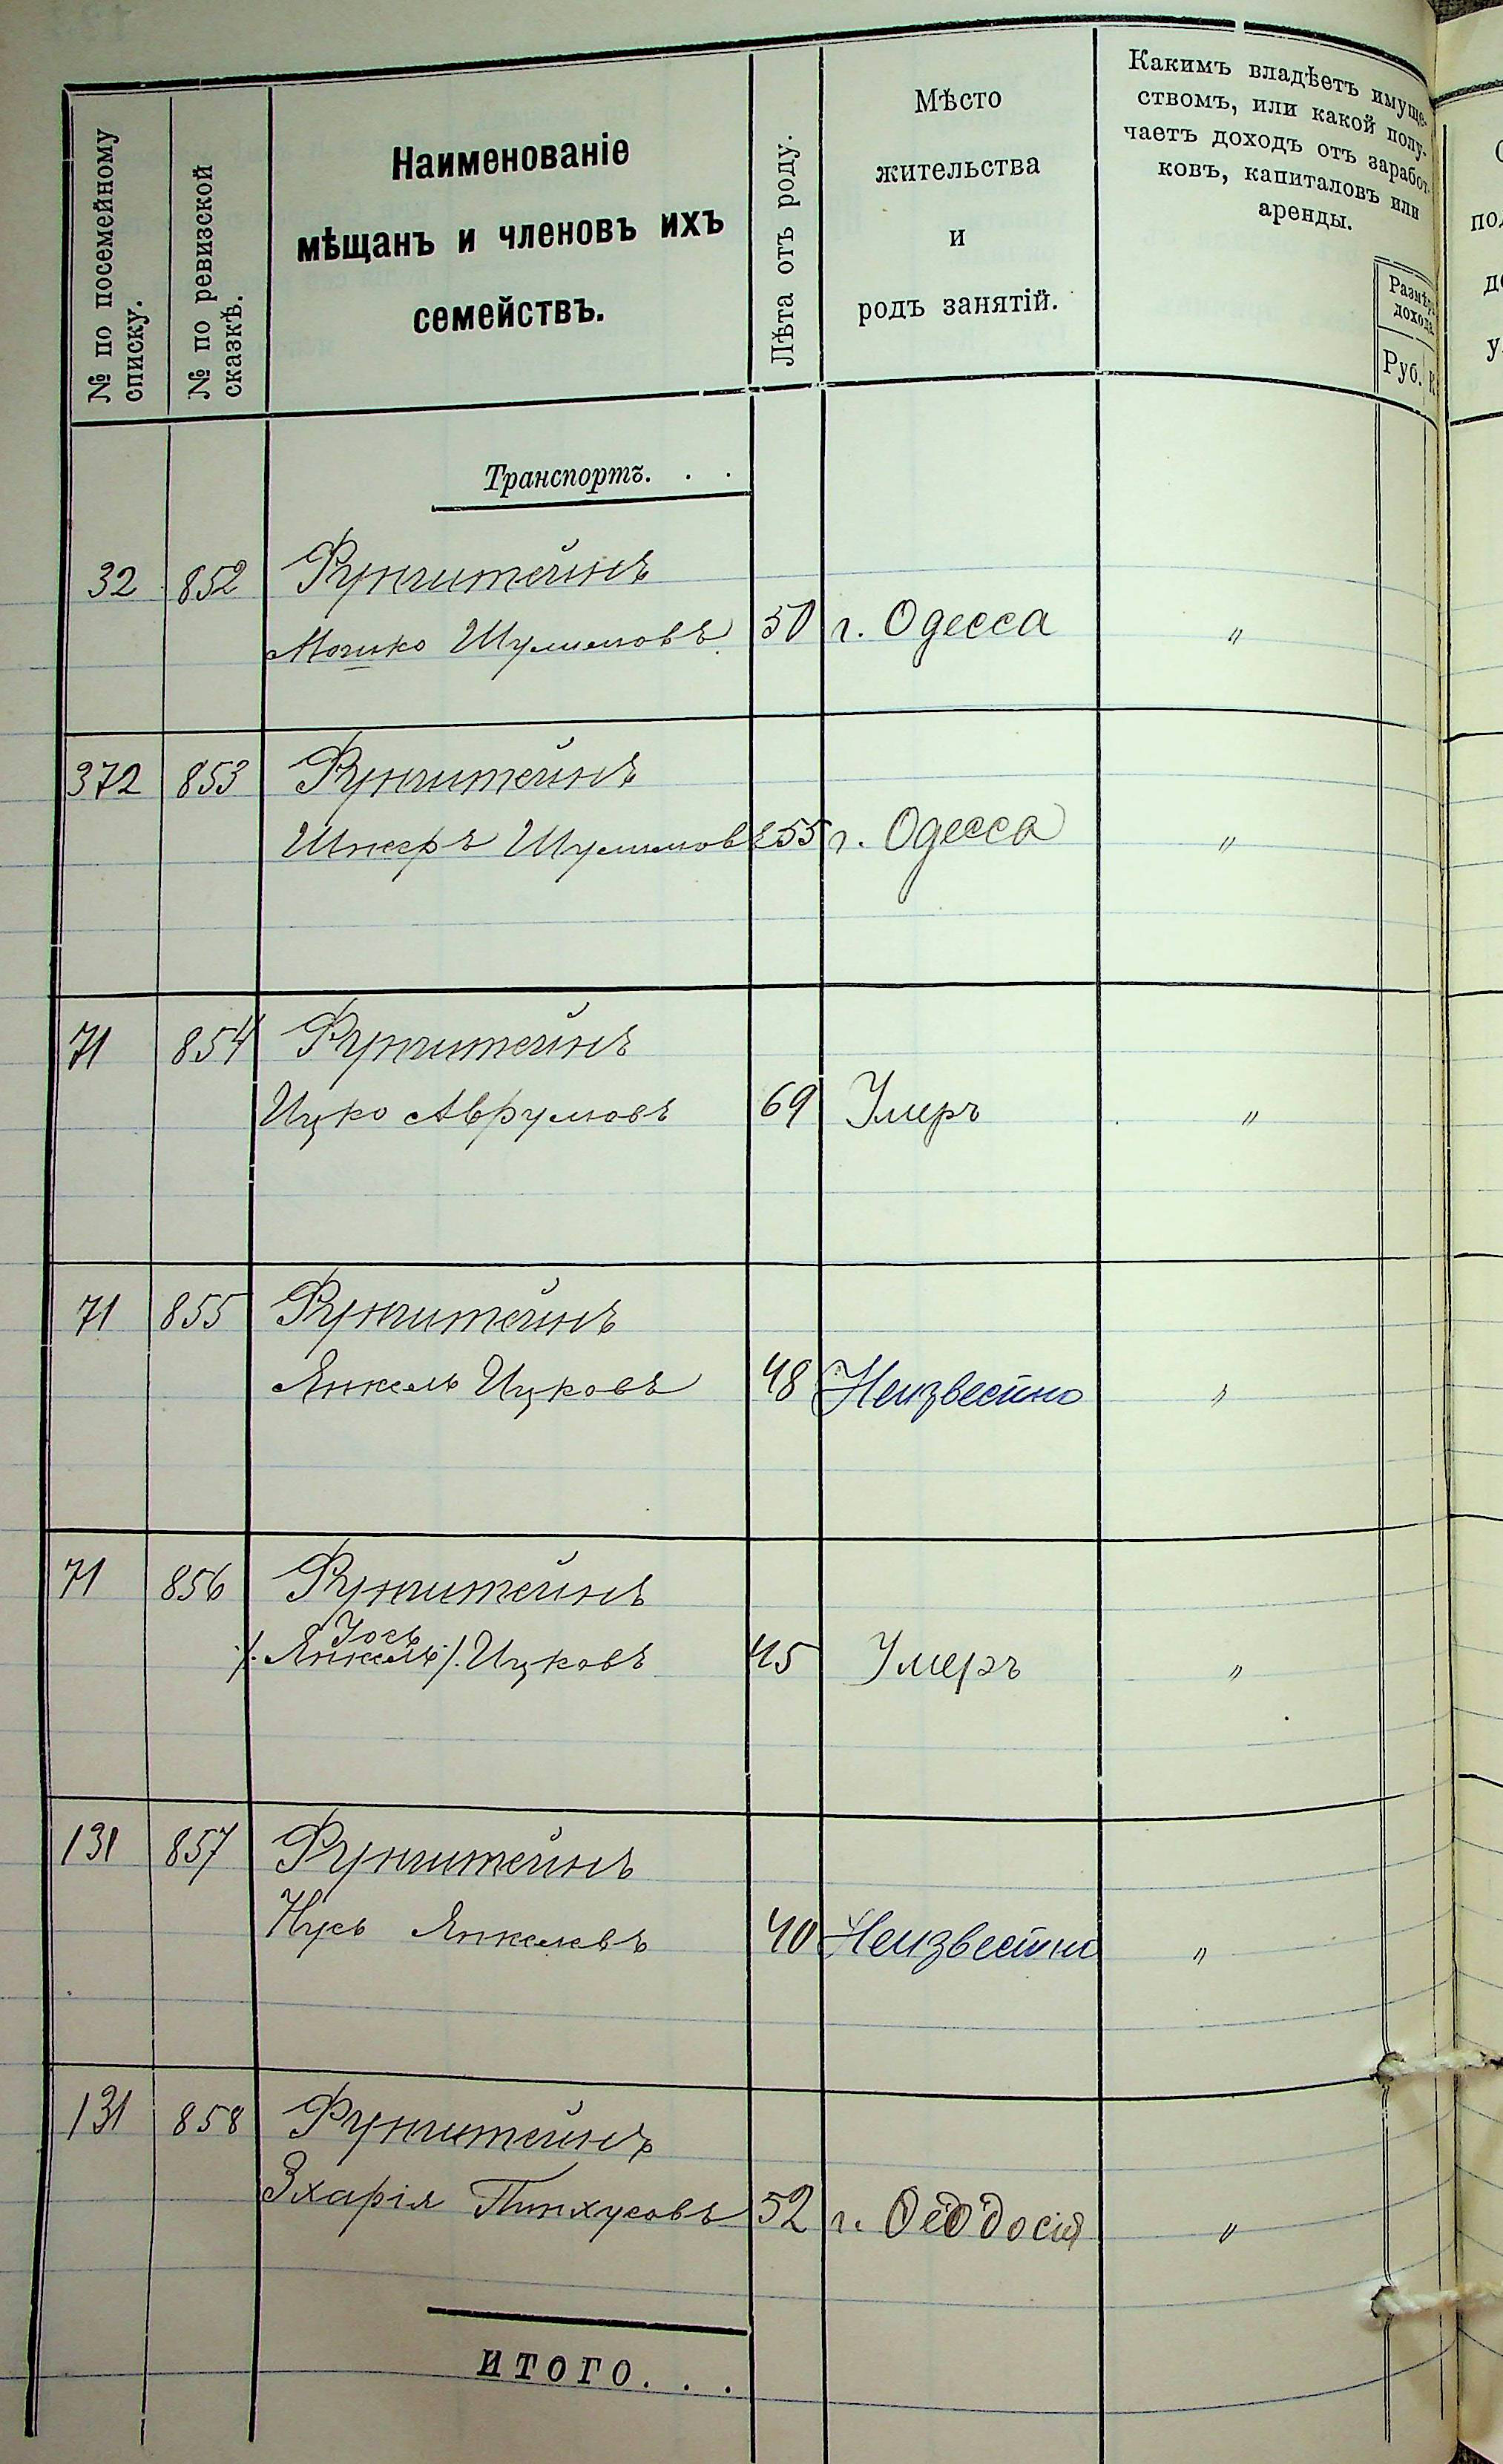 № по посемейному
списку.
№ по ревизской
сказкѣ.
Наименованіе
мѣщанъ и членовъ ихъ
семействъ.
Лѣта отъ роду.
Мѣсто
жительства
и
родъ занятій.
Какимъ владѣетъ имуще-
ствомъ, или какой полу-
чаетъ доходъ отъ заработ-
ковъ, капиталовъ или
аренды.
Размѣръ
дохода.
Руб. К
Транспортъ. . .
32 852 Функштейнъ
Мошко Шулимовъ 50 г. Одесса "
372 853 Функштейнъ
Шмеръ Шулимовъ 55 г. Одесса "
71 854 Функштейнъ
Ицко Аврумовъ 69 Умеръ "
71 855 Функштейнъ
Янкель Ицковъ 48 Неизвестно "
71 856 Функштейнъ
Іосъ
/. Янкель ./. Ицковъ 45 Умеръ "
131 857 Функштейнъ
Нусъ Янкелевъ 40 Неизвестно "
131 858 Функштейнъ
Зхарія Пинхусовъ 52 г. Ѳеодосія "
ИТОГО. . .